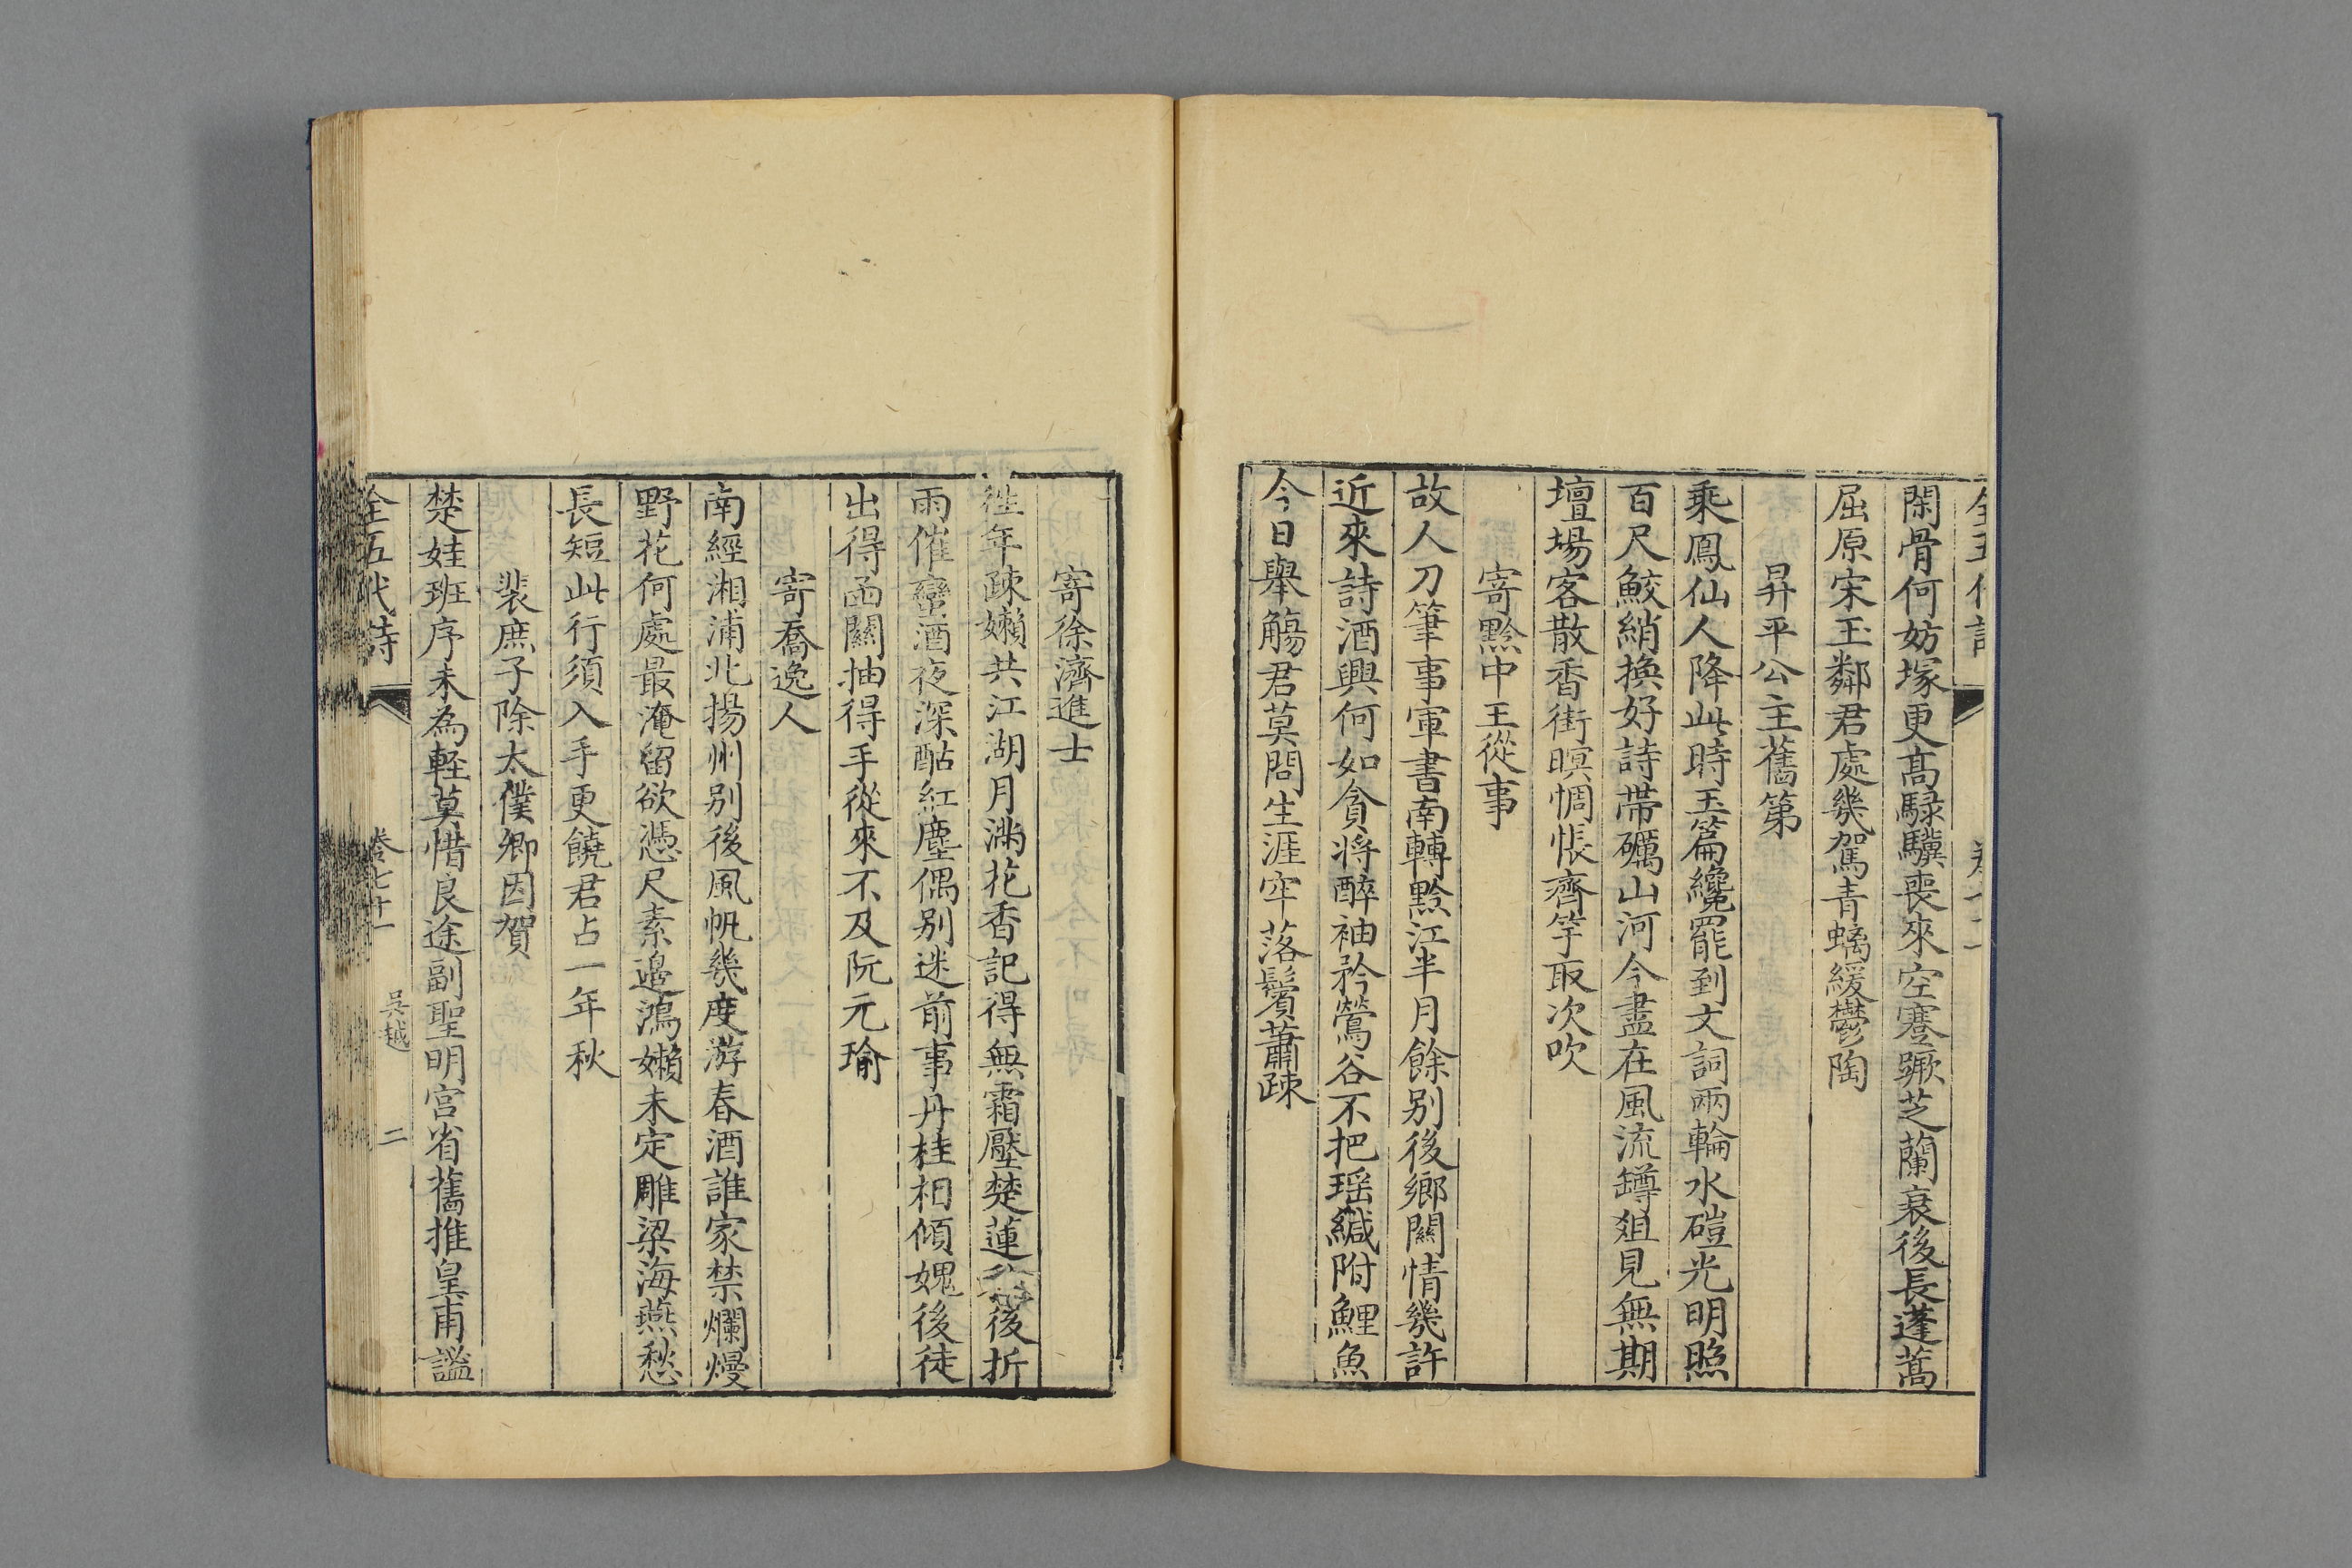 閑骨何妨塚更高騄驥喪來空蹇蹶芝蘭衰後長蓬蒿
屈原宋玉鄰君處幾駕青螭緩鬱陶
昇平公主舊第
乘鳳仙人降此時玉篇纔罷到文詞兩輪水磑光明照
百尺鮫綃換好詩帶礪山河今盡在風流罇俎見無期
壇場客散香街暝惆悵齊竽取次吹
寄黔中王從事
故人刀筆事軍書南轉黔江半月餘别後鄉關情幾許
近來詩酒興何如貪將醉袖矜鶯谷不把瑶緘附鯉魚
今日舉觴君莫問生涯牢落鬢蕭疎
寄徐濟進士
往年疎嬾共江湖月滿花香記得無霜壓楚蓮後折
雨催蠻酒夜深酤紅塵偶别迷前事丹桂相傾媿後徒
出得函關抽得手從來不及阮元瑜
寄喬逸人
南經湘浦北揚州别後風帆幾度游春酒誰家禁爛熳
野花何處最淹留欲憑尺素邊鴻嬾未定雕梁海燕愁
長短此行須入手更饒君占一年秋
裴庶子除太僕卿因賀
楚娃班序未為輕莫惜良途副聖明宫省舊推皇甫謐
全五代詩 卷七十一 吳越 二